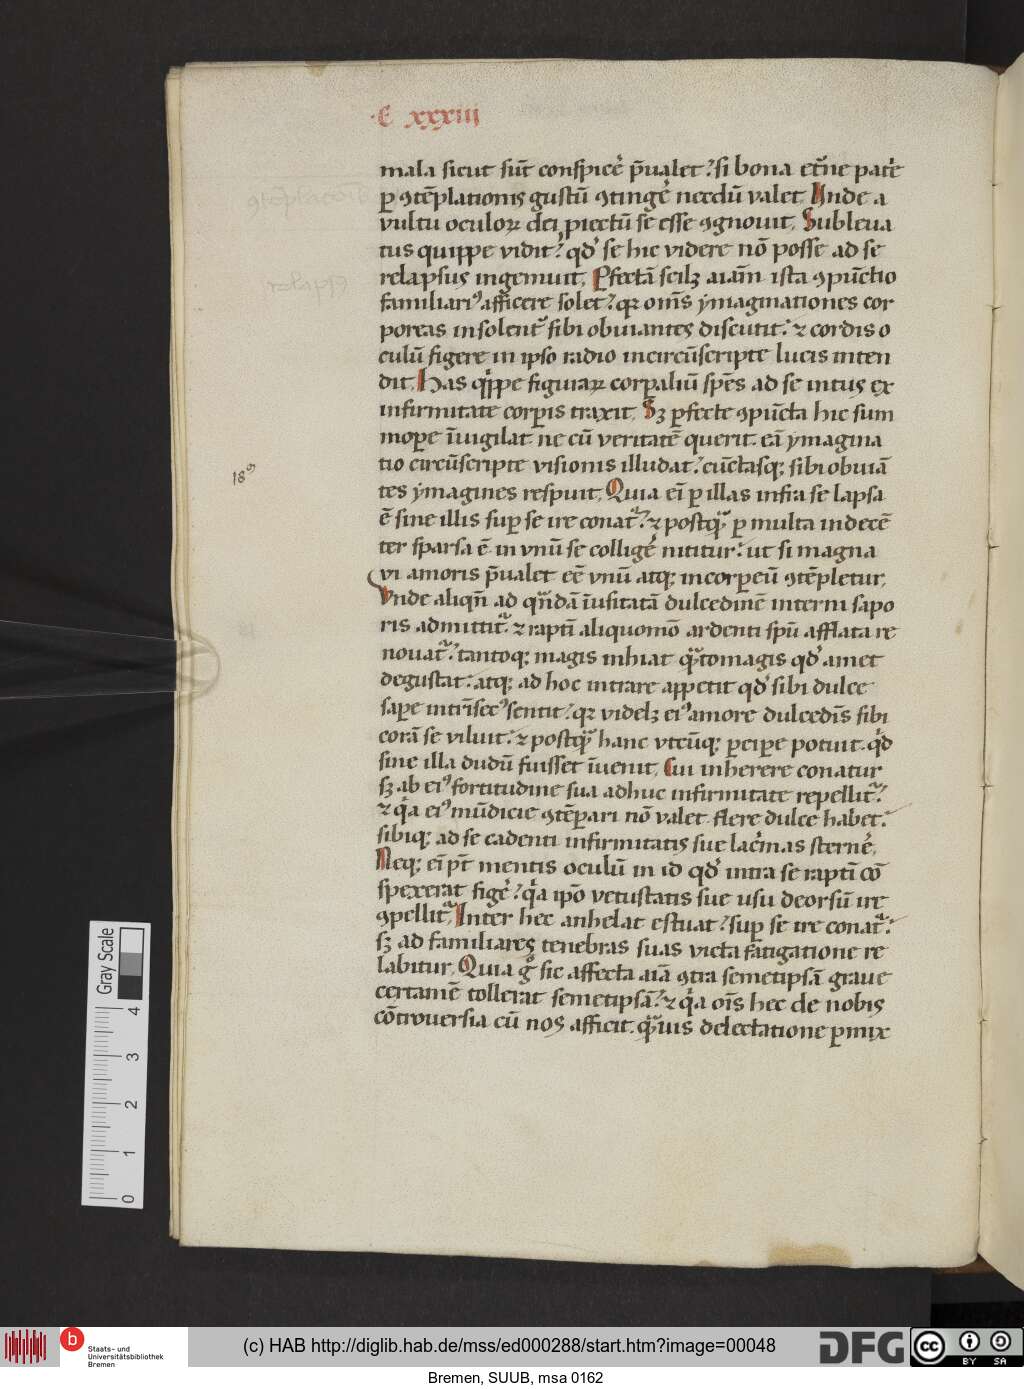 ·E xxxiii
mala sicut sūt conspicẻ p̄ualet? si bona et̄ne patẻ
ꝑ ꝯtēplationis gustū ꝯtingẻ necdū valet. Unde a
vultu oculoꝝ dei piectū se esse ꝯgnouit. Subleua
tus quippe vidit? qd' se hic videre nō posse ad se
relapsus ingemuit. Pfectā scilꝫ aiam̄ ista ꝯpūctio
familiariꝰ afficere solet? qꝛ om̄s ymaginationes cor
poreas insolent᷑ sibi obuiantes discutit: ⁊ cordis o
culū figere in ipso radio incircūscripte lucis inten
dit. Has qͥppe figuraꝝ corꝑaliū spēs ad se intus ex
infirmitate corꝑis traxit. Sꝫ ꝑfecte ꝯpūcta hic sum
moꝑe īuigilat ne cū veritatē querit. eā ymagina
tio circūscripte visionis illudat? cūctasqꝫ sibi obuiā
tes ymagines respuit. Quia eī ꝑ illas infra se lapsa
ē sine illis suꝑ se ire conat᷑? ⁊ postqͣ ꝑ multa indecē
ter sparsa ē. in vnū se colligẻ nititur: ut si magna
vi amoris p̄ualet eē vnū atqꝫ incorꝑeū ꝯtēpletur.
Vnde aliqn̄ ad qn̄dā īusitatā dulcedinē interni sapo
ris admittit᷑: ⁊ raptī aliquomō ardenti spū afflata re
nouat᷑? tantoqꝫ magis inhiat qͣtomagis qd' amet
degustat: atqꝫ ad hoc intrare appetit qd' sibi dulce
saꝑe intrīsecꝰ sentit? qꝛ videlꝫ eiꝰ amore dulcedīs sibi
corā se viluit: ⁊ postqͣ hanc vtcūqꝫ ꝑciꝑe potuit. qͥd
sine illa dudū fuisset īuenit. Cui inherere conatur
sꝫ ab eiꝰ fortitudine sua adhuc infirmitate repellit᷑?
⁊ qͥa eiꝰ mūdicie ꝯtēꝑari nō valet. flere dulce habet:
sibiqꝫ ad se cadenti infirmitatis sue lacͥmas sternẻ.
Neqꝫ eī pt̄ mentis oculū in id qd' intra se raptī cō
spexerat figẻ? qͥa ipō vetustatis sue usu deorsū ire
ꝯpellit᷑. Inter hec anhelat estuat? suꝑ se ire conat᷑:
sꝫ ad familiares tenebras suas victa fatigatione re
labitur. Quia gͦ sic affecta aiā ꝯtra semetipsā graue
certamē tollerat semetipsā? ⁊ qͥa oīs hec de nobis
cōtrouersia cū nos afficit. qͣuis delectatione ꝑmix
18ꝰ
Gray Scale
4
3
2
1
0
b
Staats- und
Universitätsbibliothek
Bremen
(c) HAB http://diglib.hab.de/mss/ed000288/start.htm?image=00048
DFG
cc
BY SA
Bremen, SUUB, msa 0162